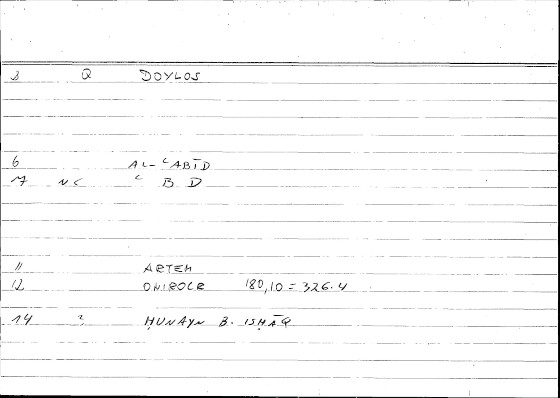 3 Q DOYLOS
6 AL-ʿABĪD
7 NC ʿ B D
11 ARTEM
12 ONIROCR 180,10 = 326.4
14 ? ḤUNAYN B. ISḤĀQ